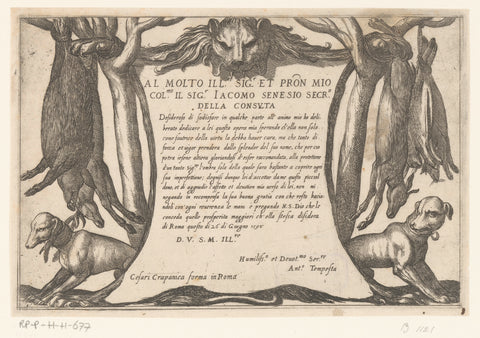 AL MOLTO ILL. SIG.r ET PRŌN MIO
COL.mo IL SIG.r IACOMO SENESIO SECR.o
DELLA CONSVTA
Desideroso di sodisfare in qualche parte all' animo mio ho deli-
berato dedicare a lei questa opera mia sperando ch'ella non solo
come fautrice della virtu la debba haver cara, ma che tanto di
forza et vigor prendera dallo splendor del suo nome, che per co
petra irsene altiera gloriandosi d'esser raccomandata alla protettione
d'un tanto Sig.r l'ombra solo della quale sara bastante a coprire ogni
sua imperfettione; degnisi dunque lei d'accettar da me questo piccol
dono, et di aggradir l'affetto et devotion mia verso di lei, non mi
negando in recompensa la sua buona gratia con che resto bacian
doli con ogni reverenza le mani e pregando N.S. Dio che le
conceda quella prosperita maggiore ch'ella stessa desidera
di Roma questo di 26 di Giugno
D. V. S. M. ILL.re
Humiliss.o et Devot.mo Ser.re
Ant.o Tempesta
Cesari Crapanica forma in Roma
RP-P-H-H-677
B 1121